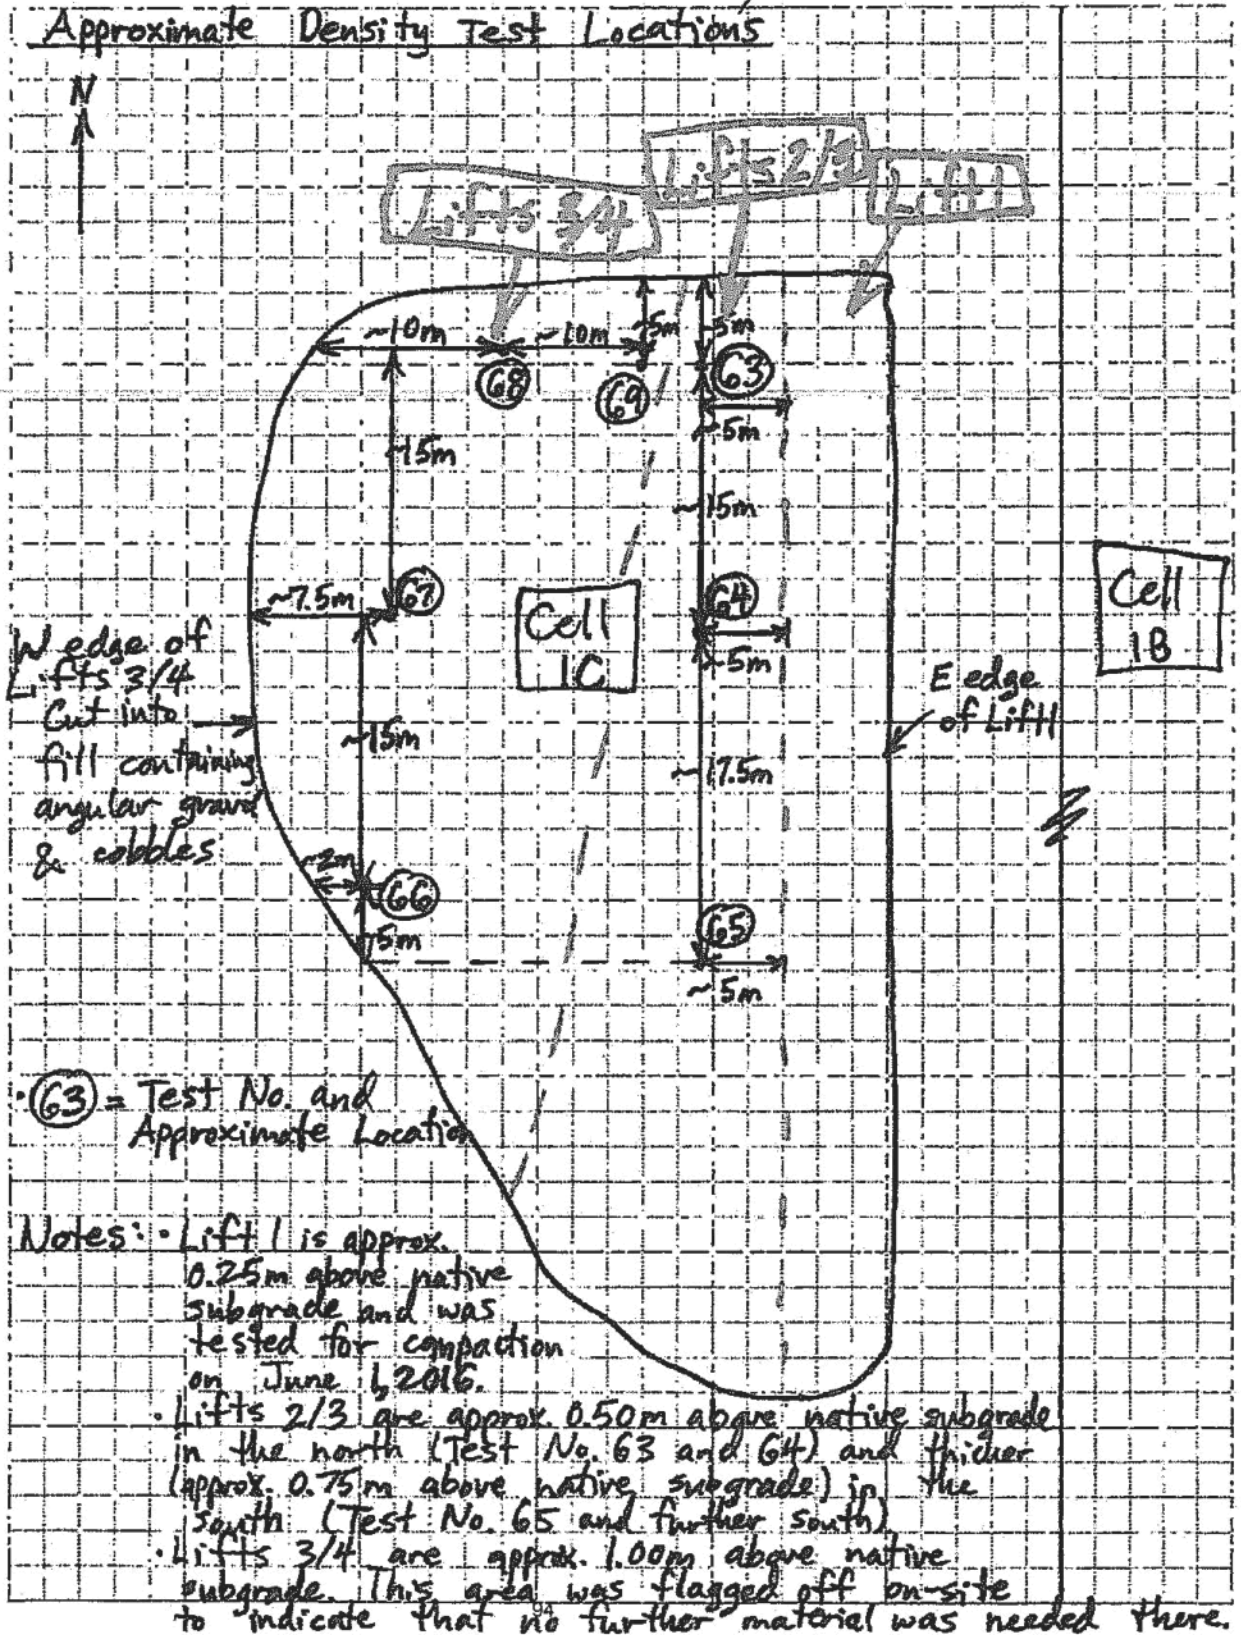 Approximate Density Test Locations
N
Lifts 3/4
Lifts 2/3
Lift 1
~10m
~10m
~5m
~5m
68
69
63
~5m
~15m
~15m
~7.5m
67
64
~5m
Cell
1C
Cell
1B
W edge of
Lifts 3/4
Cut into
fill containing
angular gravel
& cobbles
E edge
of Lift 1
~15m
~17.5m
~2m
66
~5m
65
~5m
· 63 = Test No. and
Approximate Location
Notes: · Lift 1 is approx.
0.25m above native
subgrade and was
tested for compaction
on June 1, 2016.
· Lifts 2/3 are approx. 0.50m above native subgrade
in the north (Test No. 63 and 64) and thicker
(approx. 0.75m above native subgrade) in the
south (Test No. 65 and further south).
· Lifts 3/4 are approx. 1.00m above native
subgrade. This area was flagged off on-site
to indicate that no further material was needed there.
94